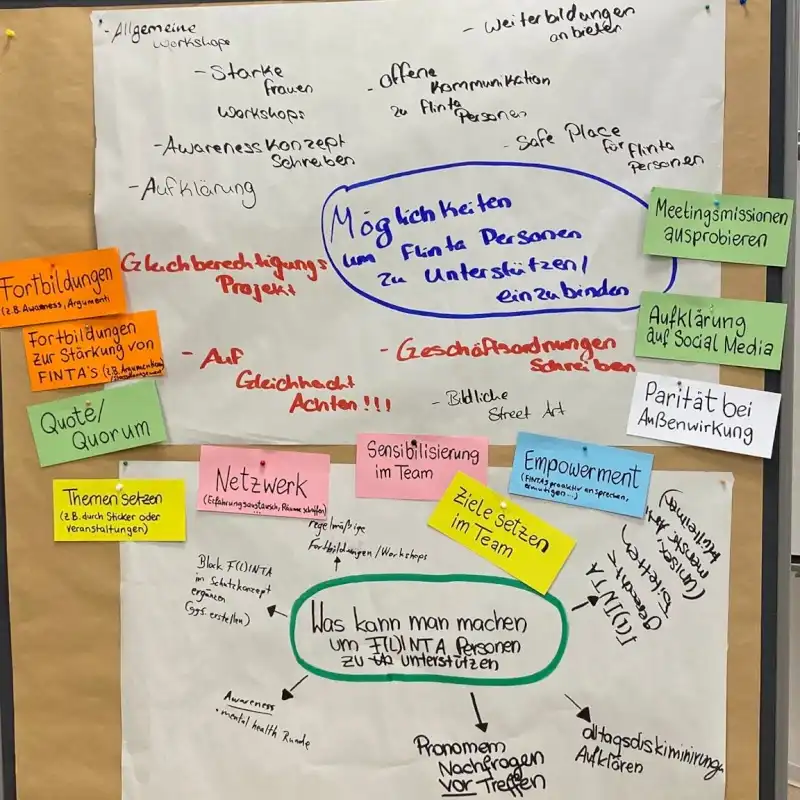 - Allgemeine
Workshops
- Weiterbildungen
anbieten
- Starke
Frauen
Workshops
- Offene
Kommunikation
zu Flinta
Personen
- Awareness Konzept
Schreiben
- Safe Place
für Flinta
Personen
- Aufklärung
Möglichkeiten
um Flinta Personen
zu Unterstützen/
einzubinden
Meetingsmissionen
ausprobieren
Gleichberechtigungs
Projekt
Fortbildungen
(z.B. Awareness, Argument)
Fortbildungen
zur Stärkung von
FINTA's (z.B. Argumentation/
Aufklärung
auf Social Media
- Auf
Gleichheit
Achten!!!
- Geschäftsordnungen
Schreiben
- Bildliche
Street Art
Parität bei
Außenwirkung
Quote/
Quorum
Themen setzen
(z.B. durch Sticker oder
Veranstaltungen)
Netzwerk
(Erfahrungsaustausch, Räume schaffen)
Sensibilisierung
im Team
Ziele setzen
im Team
Empowerment
(FINTAs proaktiv ansprechen,
ermutigen...)
regelmäßige
Fortbildungen/Workshops
Block F(L)INTA
im Schutzkonzept
ergänzen
(ggf. erstellen)
Was kann man machen
um F(L)INTA Personen
zu unterstützen
F(L)INTA
gerechte
Toiletten
(unisex,
Mülleimer)
Awareness
• mental health Runde
Pronomem
Nachfragen
vor Treffen
alltagsdiskiminirung
Aufklären